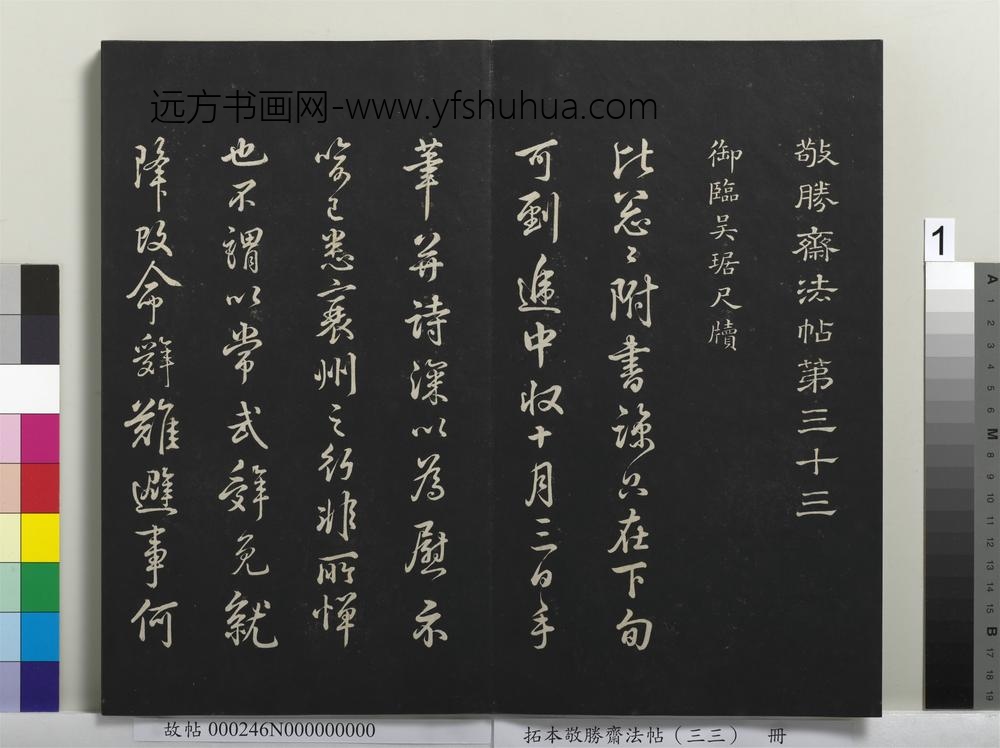 远方书画网-www.yfshuhua.com
敬勝齋法帖第三十三
御臨吴琚尺牘
比忩々附書諒只在下旬
可到遞中收十月三日手
筆并詩深以為慰示
喻已悉襄州之行非所憚
也不謂以常式辞免就
降改命辞難避事何
1
A
1
2
3
4
5
6
M
8
9
10
11
12
13
14
15
B
17
18
19
故帖 000246N000000000
拓本敬勝齋法帖（三三） 冊